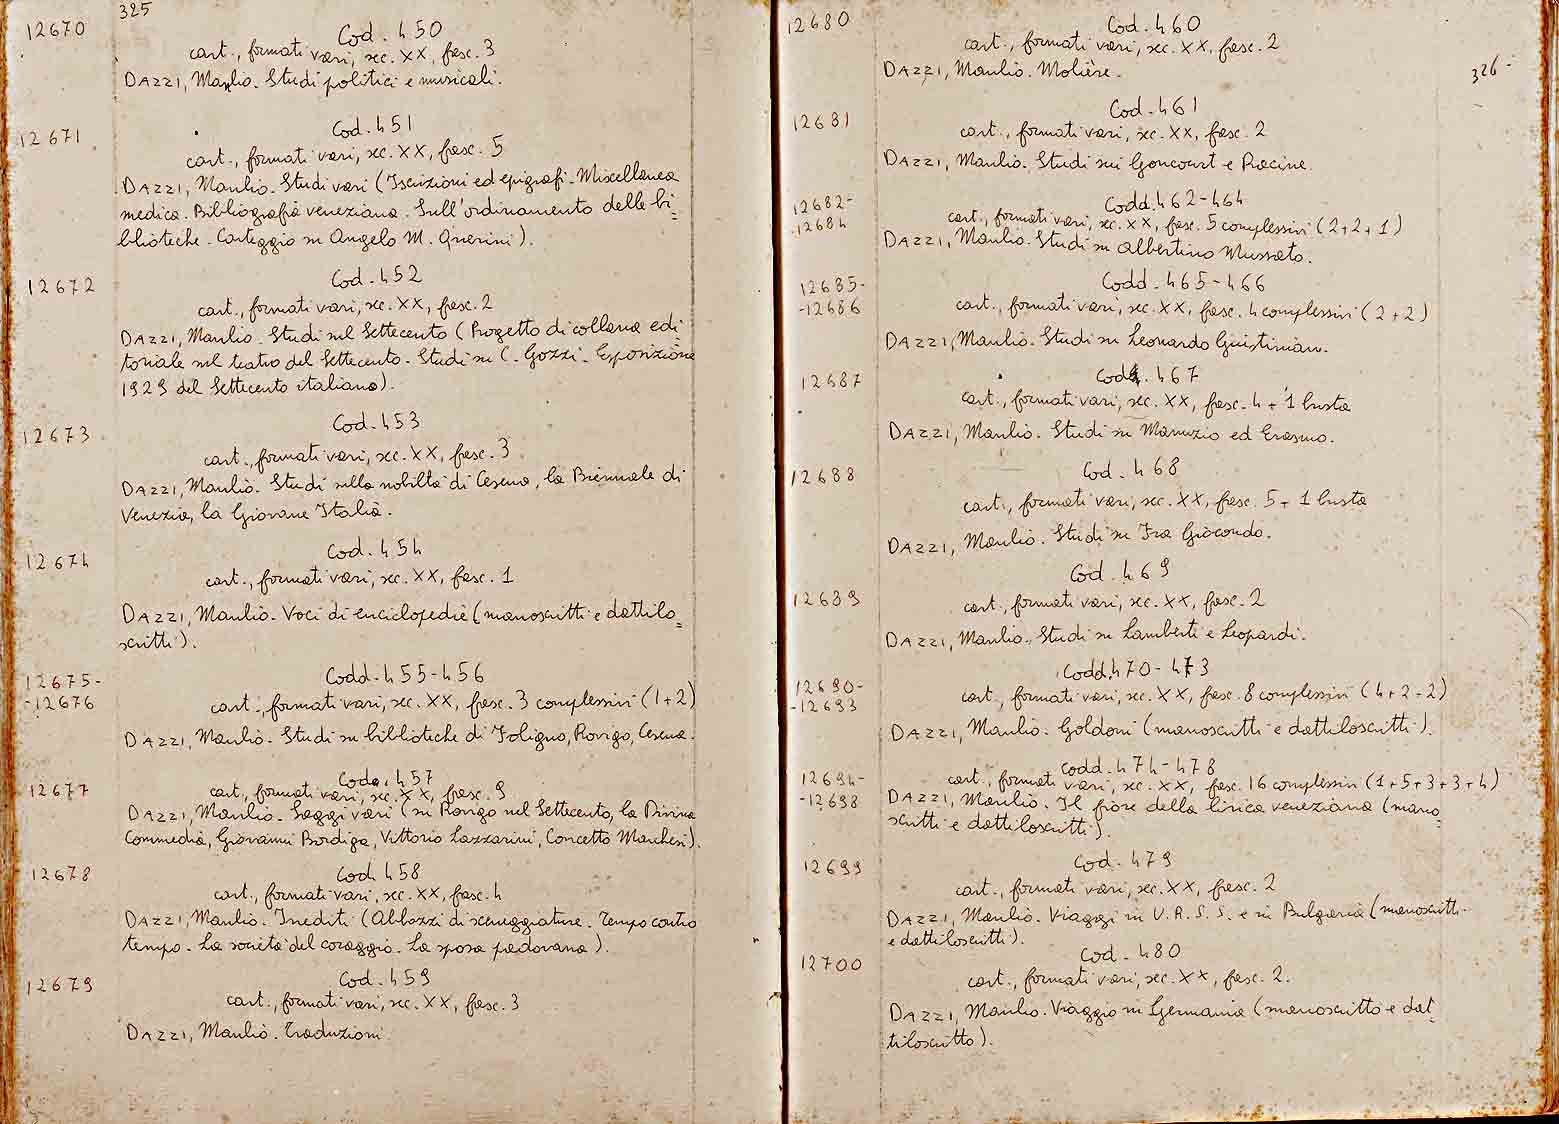 325
12670
Cod. 450
cart., formati vari, sec. XX, fasc. 3
DAZZI, Manlio. Studi politici e musicali.
12671
Cod. 451
cart., formati vari, sec. XX, fasc. 5
DAZZI, Manlio. Studi vari (Iscrizioni ed epigrafi. Miscellanea
medica. Bibliografia veneziana. Sull'ordinamento delle bi=
blioteche. Carteggio su Angelo M. Querini).
12672
Cod. 452
cart., formati vari, sec. XX, fasc. 2
DAZZI, Manlio. Studi sul Settecento (Progetto di collana edi
toriale sul teatro del Settecento. Studi su C. Gozzi. Esposizione
1929 del Settecento italiano).
12673
Cod. 453
cart., formati vari, sec. XX, fasc. 3
DAZZI, Manlio. Studi sulla nobiltà di Cesena, la Biennale di
Venezia, la Giovane Italia.
12674
Cod. 454
cart., formati vari, sec. XX, fasc. 1
DAZZI, Manlio. Voci di enciclopedia (manoscritti e dattilo=
scritti).
12675-
-12676
Codd. 455-456
cart., formati vari, sec. XX, fasc. 3 complessivi (1+2)
DAZZI, Manlio. Studi su biblioteche di Foligno, Rovigo, Cesena.
12677
Cod. 457
cart., formati vari, sec. XX, fasc. 9
DAZZI, Manlio. Saggi vari (su Rovigo nel Settecento, la Divina
Commedia, Giovanni Bordiga, Vittorio Lazzarini, Concetto Marchesi).
12678
Cod. 458
cart., formati vari, sec. XX, fasc. 4
DAZZI, Manlio. Inediti (Abbozzi di sceneggiature. Tempo contro
tempo. La società del coraggio. La sposa padovana).
12679
Cod. 459
cart., formati vari, sec. XX, fasc. 3
DAZZI, Manlio. Traduzioni
326
12680
Cod. 460
cart., formati vari, sec. XX, fasc. 2
DAZZI, Manlio. Molière.
12681
Cod. 461
cart., formati vari, sec. XX, fasc. 2
DAZZI, Manlio. Studi sui Goncourt e Racine.
12682-
-12684
Codd. 462-464
cart., formati vari, sec. XX, fasc. 5 complessivi (2+2+1)
DAZZI, Manlio. Studi su Albertino Mussato.
12685-
-12686
Codd. 465-466
cart., formati vari, sec. XX, fasc. 4 complessivi (2+2)
DAZZI, Manlio. Studi su Leonardo Giustinian.
12687
Cod. 467
cart., formati vari, sec. XX, fasc. 4 + 1 busta
DAZZI, Manlio. Studi su Manuzio ed Erasmo.
12688
Cod. 468
cart., formati vari, sec. XX, fasc. 5 + 1 busta
DAZZI, Manlio. Studi su Fra Giocondo.
12689
Cod. 469
cart., formati vari, sec. XX, fasc. 2
DAZZI, Manlio. Studi su Lamberti e Leopardi.
12690-
-12693
Codd. 470-473
cart., formati vari, sec. XX, fasc. 8 complessivi (4+2-2)
DAZZI, Manlio. Goldoni (manoscritti e dattiloscritti).
12694-
-12698
Codd. 474-478
cart., formati vari, sec. XX, fasc. 16 complessivi (1+5+3+3+4)
DAZZI, Manlio. Il fiore della lirica veneziana (mano=
scritti e dattiloscritti).
12699
Cod. 479
cart., formati vari, sec. XX, fasc. 2
DAZZI, Manlio. Viaggi in U.R.S.S. e in Bulgaria (manoscritti
e dattiloscritti).
12700
Cod. 480
cart., formati vari, sec. XX, fasc. 2.
DAZZI, Manlio. Viaggio in Germania (manoscritto e dat=
tiloscritto).